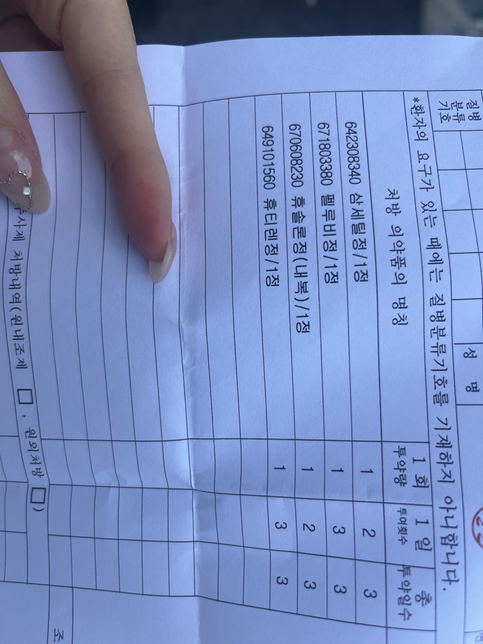 질병
분류
기호
성 명
*환자의 요구가 있는 때에는 질병분류기호를 기재하지 아니합니다.
처방 의약품의 명칭 1회 투약량 1일 투여횟수 총 투약일수
642308340 삼세틸정/1정 1 2 3
671803380 펠루비정/1정 1 3 3
670608230 휴솔론정(내복)/1정 1 2 3
649101560 휴티렌정/1정 1 3 3
주사제 처방내역(원내조제 □, 원외처방 □)
조